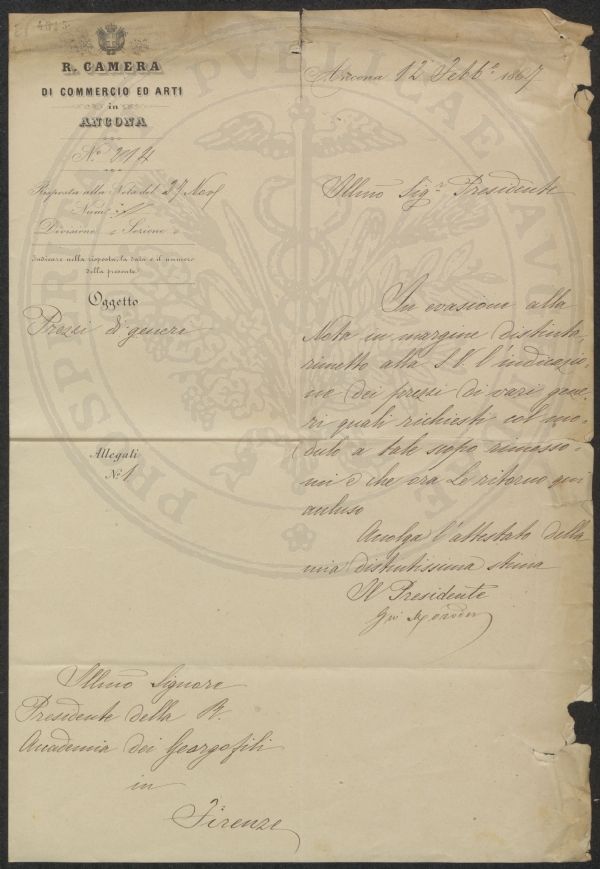 R. CAMERA
DI COMMERCIO ED ARTI
in
ANCONA
N.º
Risposta alla Nota del 27 Nov
Num.
Divisione Sezione
Indicare nella risposta, la data e il numero
della presente.
Oggetto
Prezzi di generi
Allegati
N.º 1
Ancona 12 Febb.º 1867
Illmo Sig.r Presidente
In evasione alla
Nota in margine distinta,
rimetto alla S. V. l'indicazio-
ne dei prezzi di vari gene-
ri quali richiesti col mo-
dulo a tale scopo rimesso-
mi e che ora Le ritorno qui
accluso
Accolga l'attestato della
mia distintissima stima
Il Presidente
Illmo Signore
Presidente della R.
Accademia dei Georgofili
in
Firenze